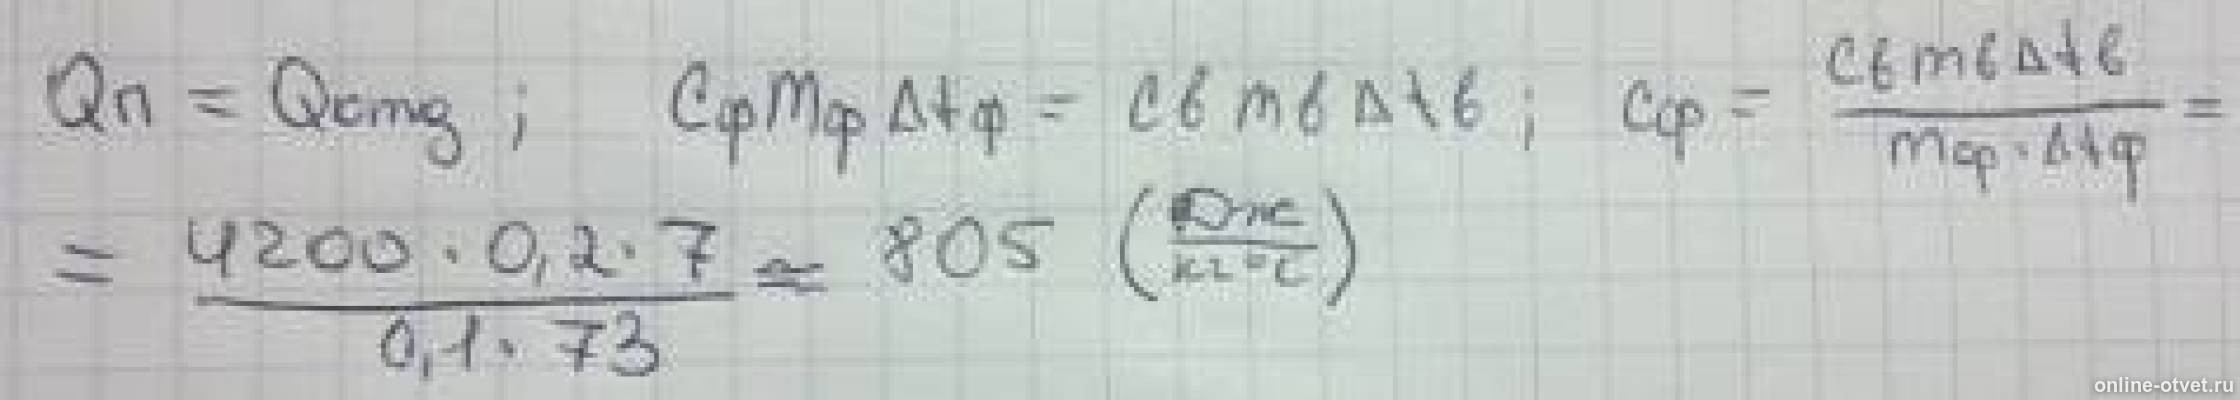 Qп = Qотд ; CфMф Δtф = Cв mв Δtв ; Cф = Cв mв Δtв / mф · Δtф =
= 4200 · 0,2 · 7 / 0,1 · 73 ≃ 805 (Дж / кг°C)
online-otvet.ru